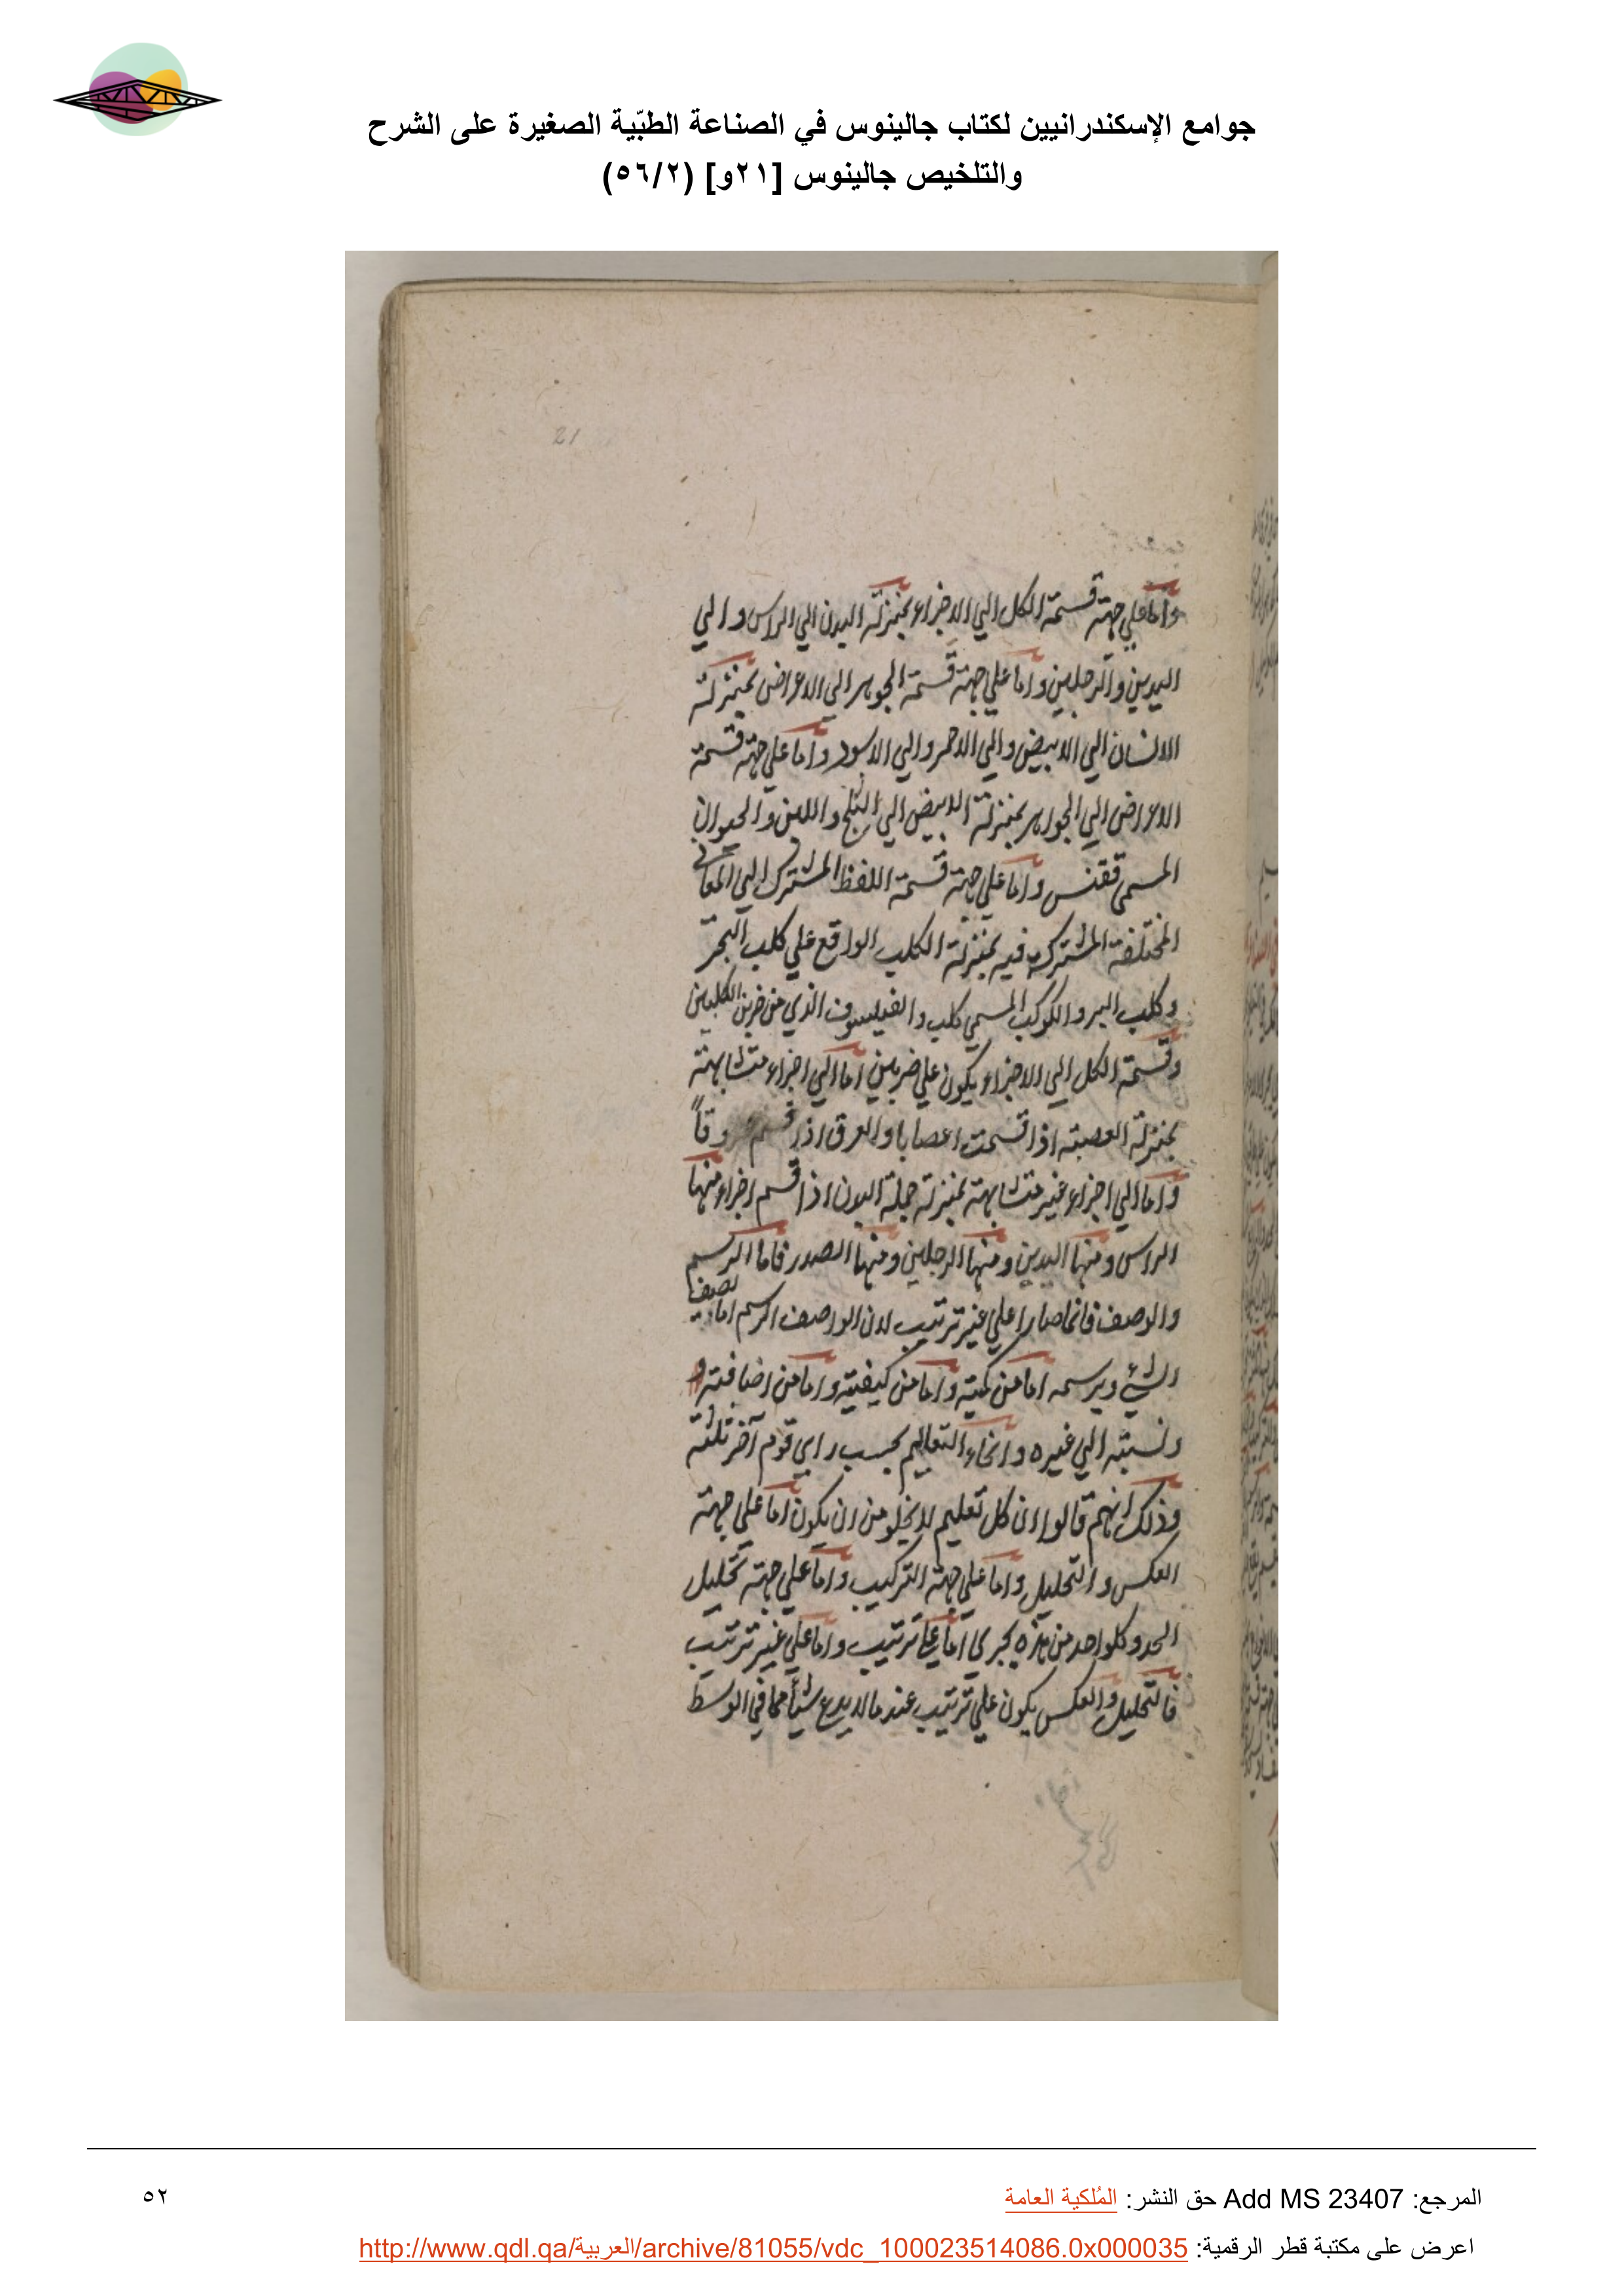 جوامع الإسكندرانيين لكتاب جالينوس في الصناعة الطبّية الصغيرة على الشرح
والتلخيص جالينوس [٢١و] (٥٦/٢)
21
واما علي جهة قسمة الكل الي الاجزاء بمنزلة البدن الي الراس والي
اليدين والرجلين واما علي جهة قسمة الجوهر الي الاعراض بمنزلة
الانسان الي الابيض والي الاحمر والي الاسود واما علي جهة قسمة
الاعراض الي الجواهر بمنزلة الابيض الي الثلج واللبن والحيوان
المسمي ققنس واما علي جهة قسمة اللفظ المشترك الي المعاني
المختلفة المشتركة فيه بمنزلة الكلب الواقع علي كلب البحر
وكلب البر والكوكب المسمي كلب والفيلسوف الذي من حزب الكلبين
وقسمة الكل الي الاجزاء يكون علي ضربين اما الي اجزاء متشابهة
بمنزلة العصبة اذا قسمت اعصابا والعرق اذا قسم عروقاً
واما الي اجزاء غير متشابهة بمنزلة جملة البدن اذا قسم اجزاء منها
الراس ومنها اليدين ومنها الرجلين ومنها الصدر فاما الرسم
والوصف فانما صارا علي غير ترتيب لان الواصف الرسم اما يصف
الشئ ويرسمه اما من كميته واما من كيفيته واما من اضافته
ونسبته الي غيره وانحاء التعاليم بحسب راي قوم آخر ثلثة
وذلك انهم قالوا ان كل تعليم لا يخلو من ان يكون اما علي جهة
العكس والتحليل واما علي جهة التركيب واما علي جهة تحليل
الحد وكل واحد من هذه يجري اما علي ترتيب واما علي غير ترتيب
فالتحليل والعكس يكون علي ترتيب عندما لا يدع شيأ مما في الوسط
المرجع: Add MS 23407 حق النشر: المُلكية العامة
٥٢
اعرض على مكتبة قطر الرقمية: http://www.qdl.qa/العربية/archive/81055/vdc_100023514086.0x000035